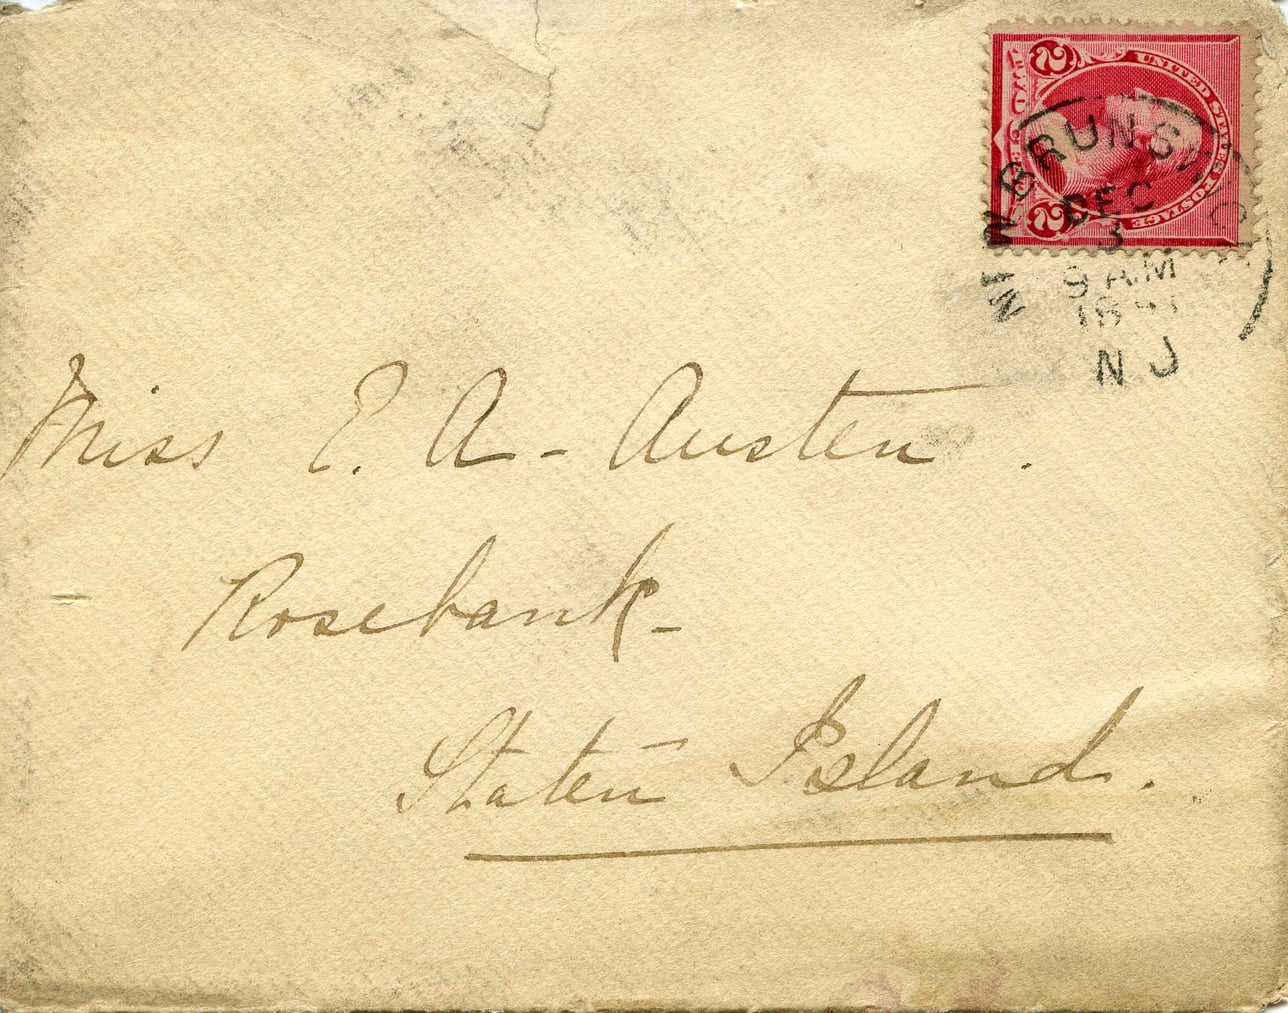 2
UNITED STATES POSTAGE
2
NEW BRUNSWIC
DEC
3
9 AM
N J
Miss E. A - Austen.
Rosebank -
Staten Island.